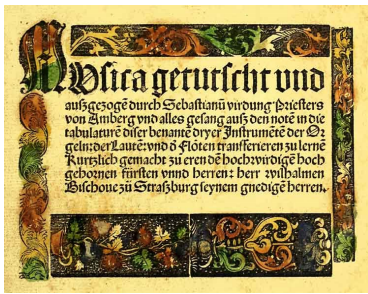 Musica getutscht und
außgezogē durch Sebastianū virdung Priesters
von Amberg vnd alles gesang auß den notē in die
tabulaturē diser benantē dryer Instrumētē der Or
geln: der Lautē: vnd ď Flöten transferieren zu lernē
Kurtzlich gemacht zů eren dē hochwirdigē hoch
gebornen fürsten vnnd herren: herr wilhalmen
Bischoue zů Straßburg seynem gnedigē herren.